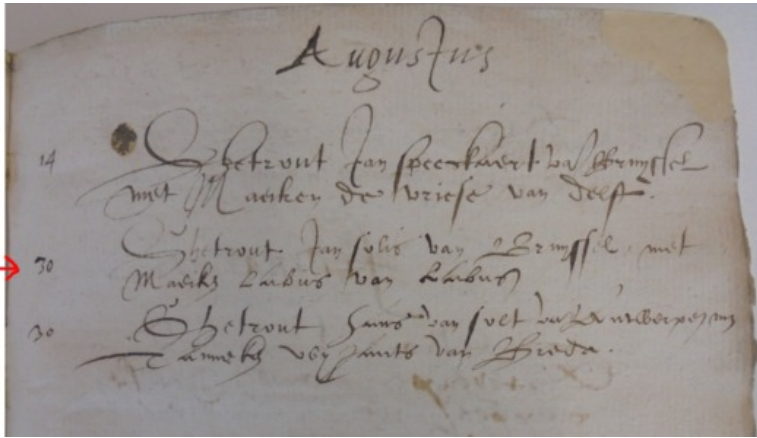 Augustus
14 Ghetrout Jan speeckaert va Bruyssel
met Maeiken de vriese van delft.
30 Ghetrout Jan solis van Bruyssel met
Maeikē Labus van Labus
30 Ghetrout hans van solt va Antwerpen
Tannekē van Breda.